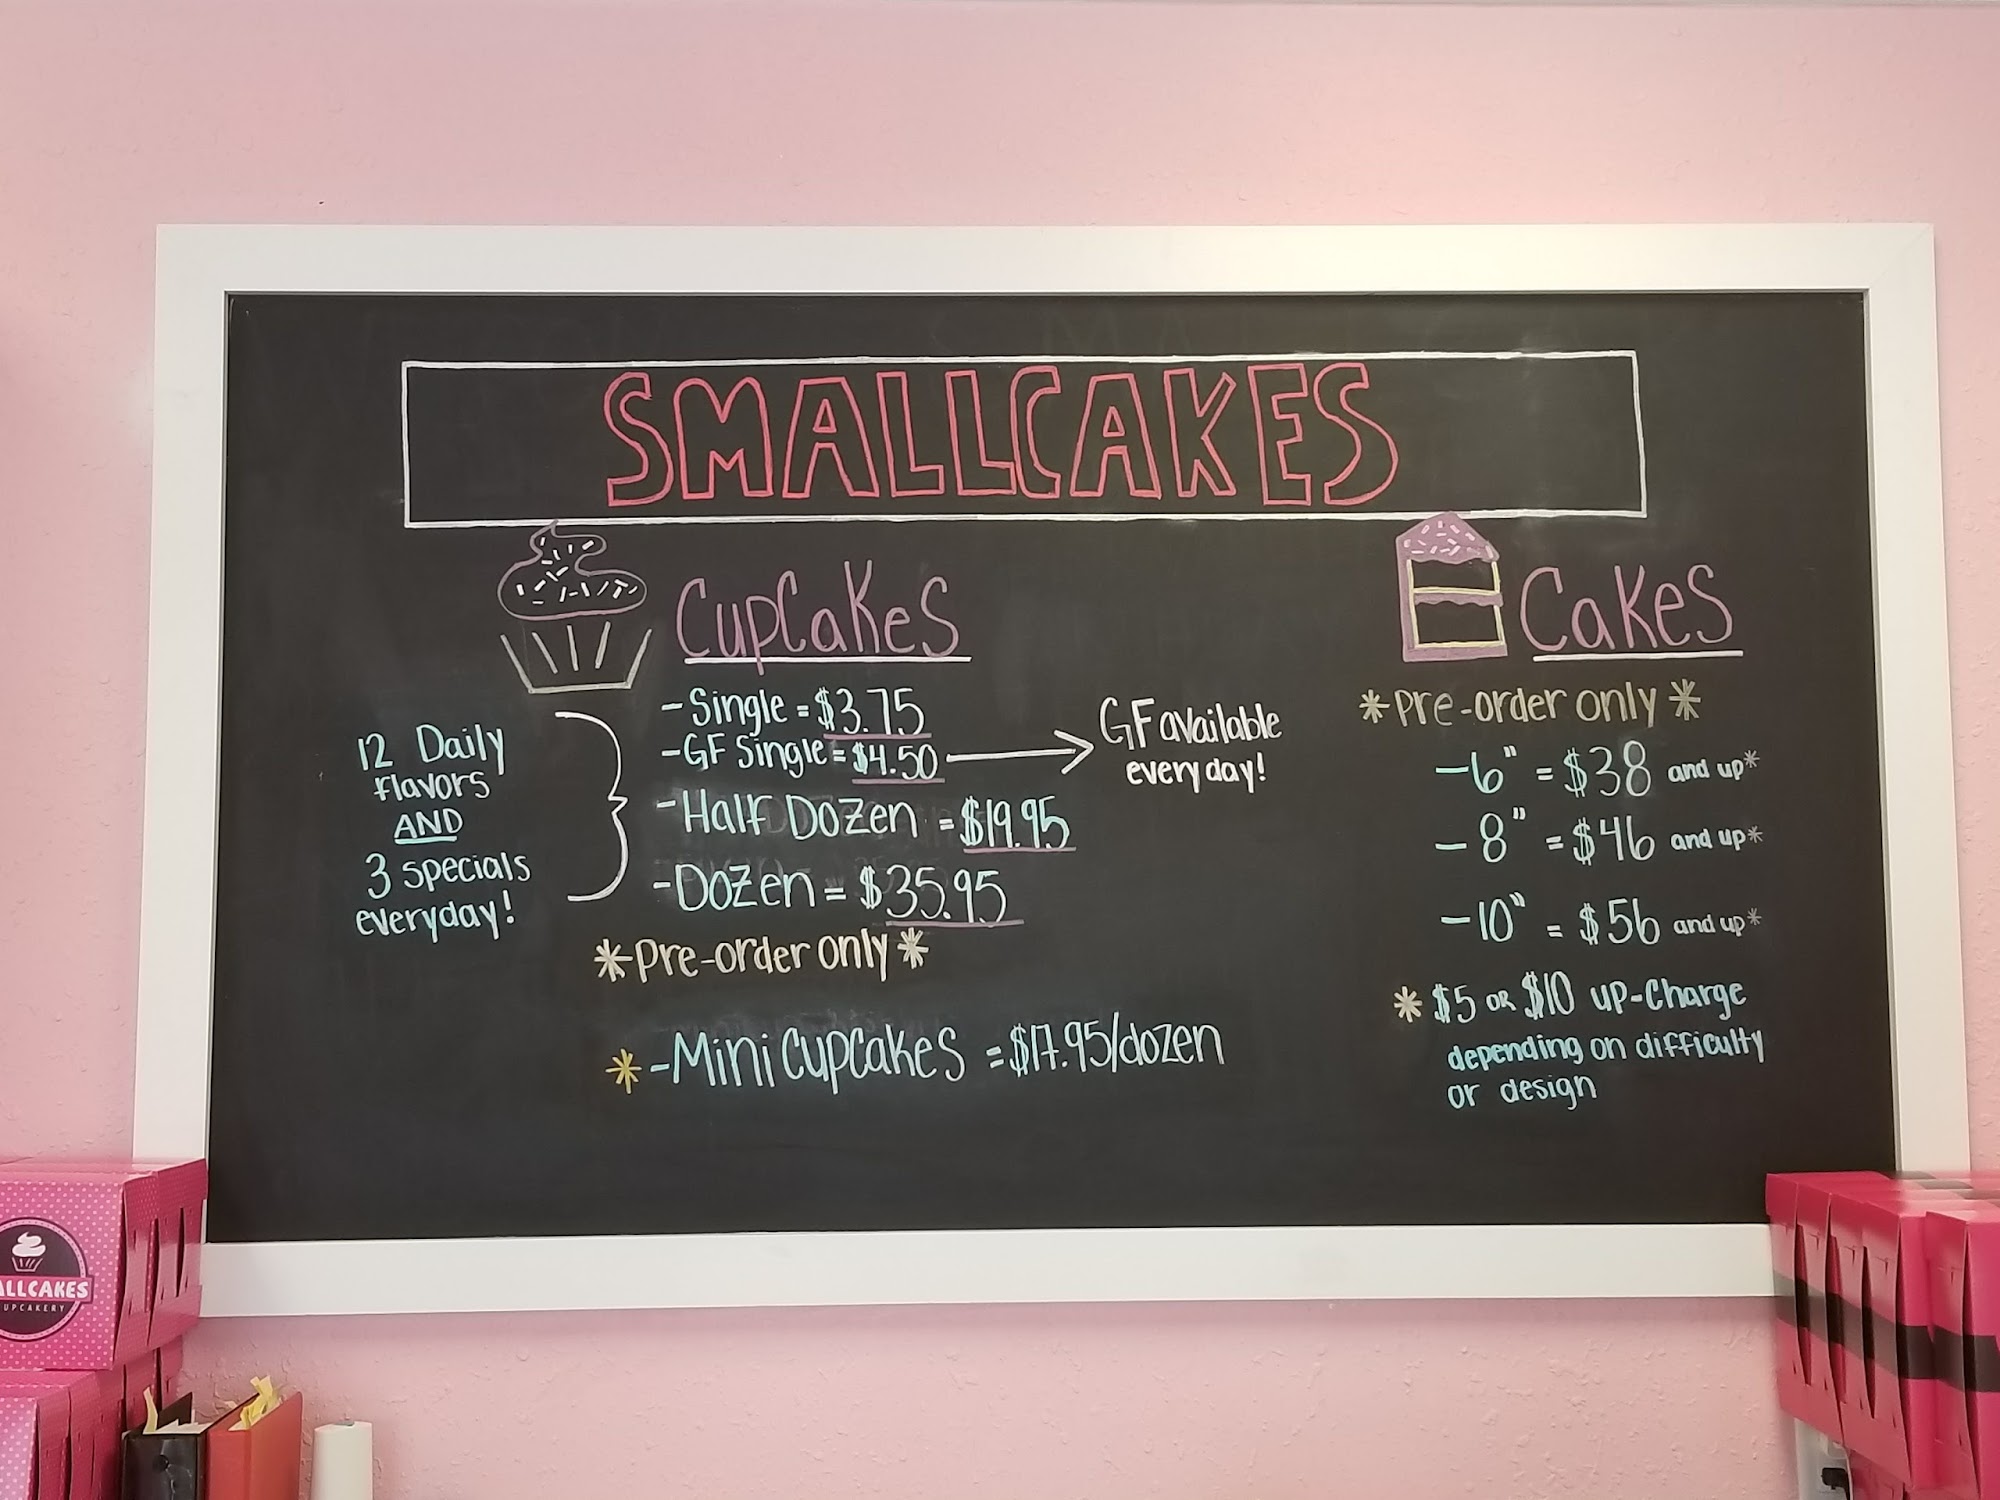 SMALLCAKES
CupCakes
-Single = $3.75
-GF Single = $4.50
GF available
every day!
-Half Dozen = $19.95
-Dozen = $35.95
12 Daily
flavors
AND
3 specials
everyday!
*Pre-order only*
* -Mini CupCakes = $17.95/dozen
Cakes
*Pre-order only*
-6" = $38 and up*
-8" = $46 and up*
-10" = $56 and up*
* $5 OR $10 up-Charge
depending on difficulty
or design
ALLCAKES
UPCAKERY